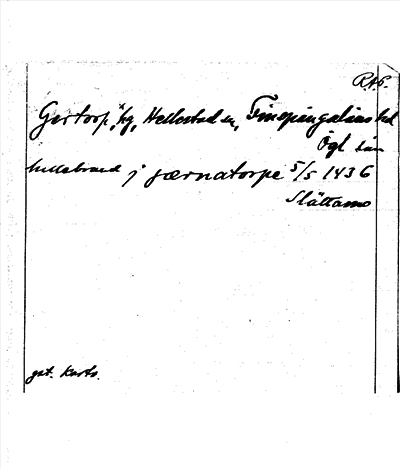 RAP.
Gertorp, hg, Hellestad sn, Finspångaläns hd
Ögl län
hellebrand j gærnatorpe 5/5 1436
Slättamo
gst. Karta.